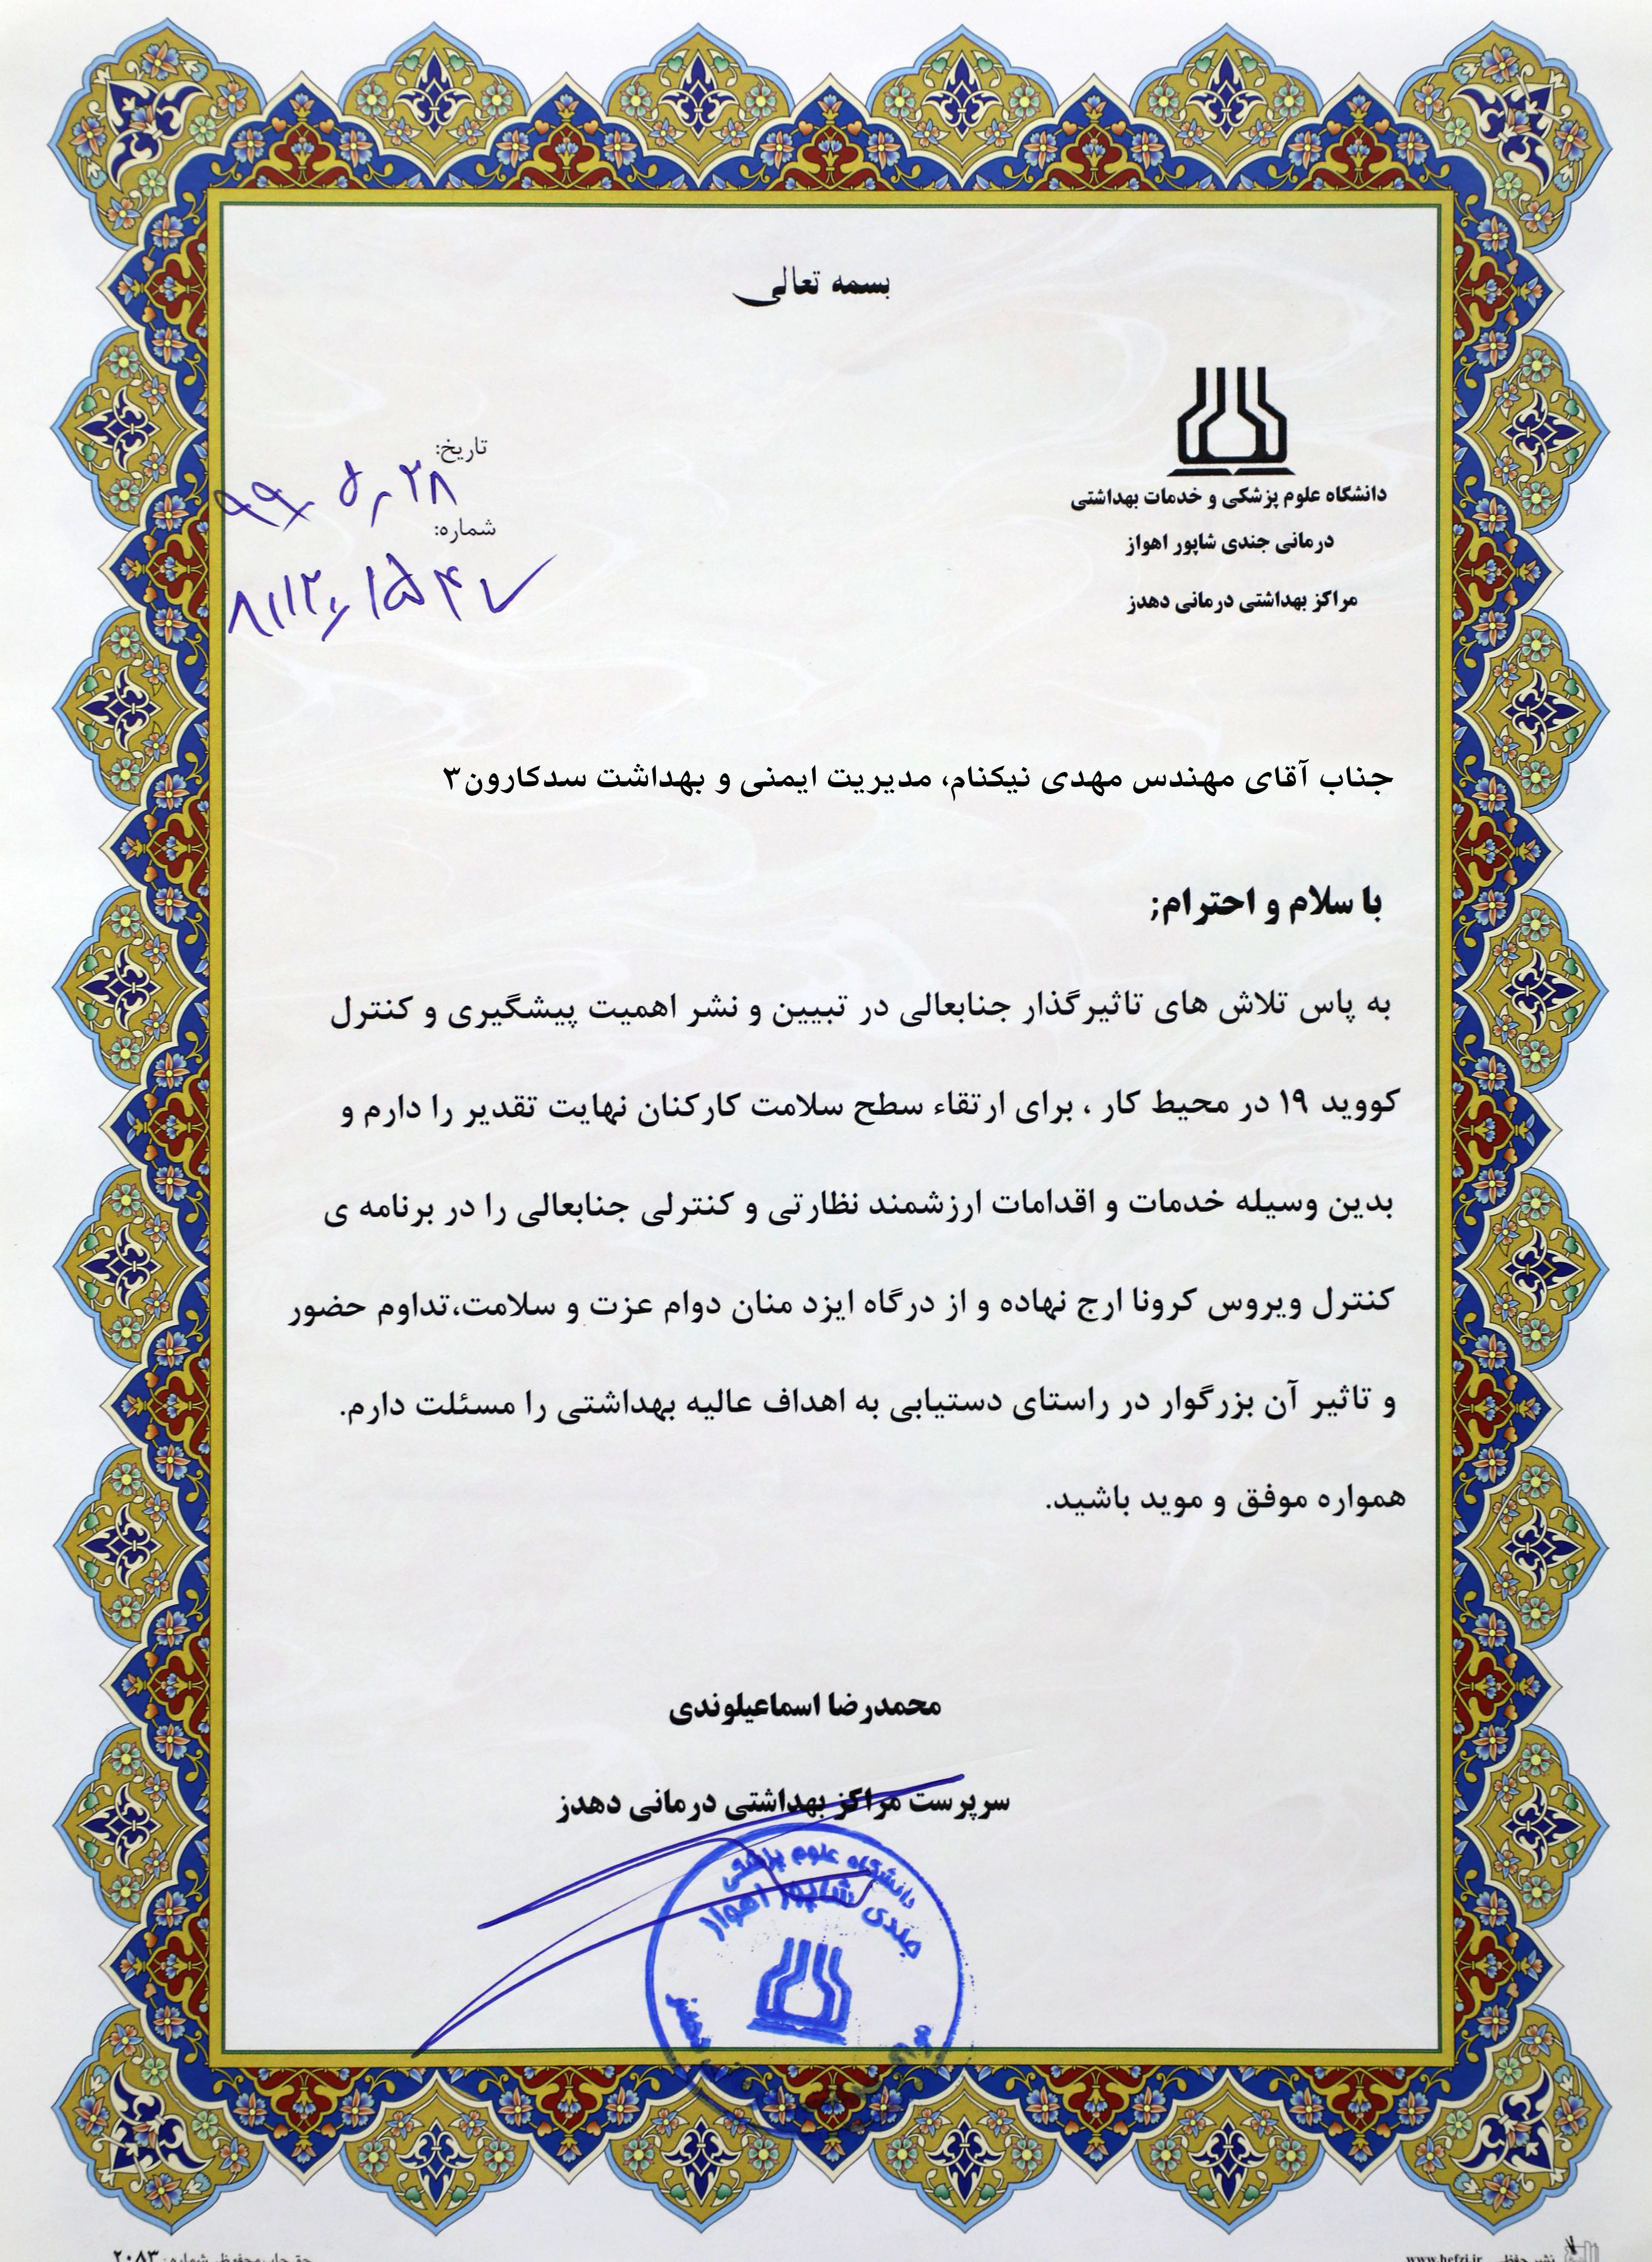 بسمه تعالی
دانشگاه علوم پزشکی و خدمات بهداشتی
درمانی جندی شاپور اهواز
مراکز بهداشتی درمانی دهدز
تاریخ:
۹۹٫۵٫۲۸
شماره:
جناب آقای مهندس مهدی نیکنام، مدیریت ایمنی و بهداشت سدکارون۳
با سلام و احترام;
به پاس تلاش های تاثیرگذار جنابعالی در تبیین و نشر اهمیت پیشگیری و کنترل
کووید ۱۹ در محیط کار ، برای ارتقاء سطح سلامت کارکنان نهایت تقدیر را دارم و
بدین وسیله خدمات و اقدامات ارزشمند نظارتی و کنترلی جنابعالی را در برنامه ی
کنترل ویروس کرونا ارج نهاده و از درگاه ایزد منان دوام عزت و سلامت،تداوم حضور
و تاثیر آن بزرگوار در راستای دستیابی به اهداف عالیه بهداشتی را مسئلت دارم.
همواره موفق و موید باشید.
محمدرضا اسماعیلوندی
سرپرست مراکز بهداشتی درمانی دهدز
دانشگاه علوم پزشکی
جندی شاپور اهواز
شماره: ۲۰۸۳
نشر حفظی www.hefzi.ir